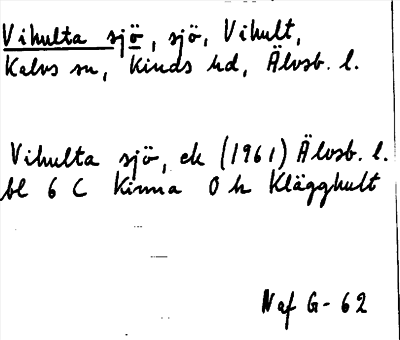 Vihulta sjö, sjö, Vihult,
Kalvs sn, Kinds hd, Älvsb. l.
Vihulta sjö, ek (1961) Älvsb. l.
bl 6 C Kinna 0 h Klägghult
Naf G-62